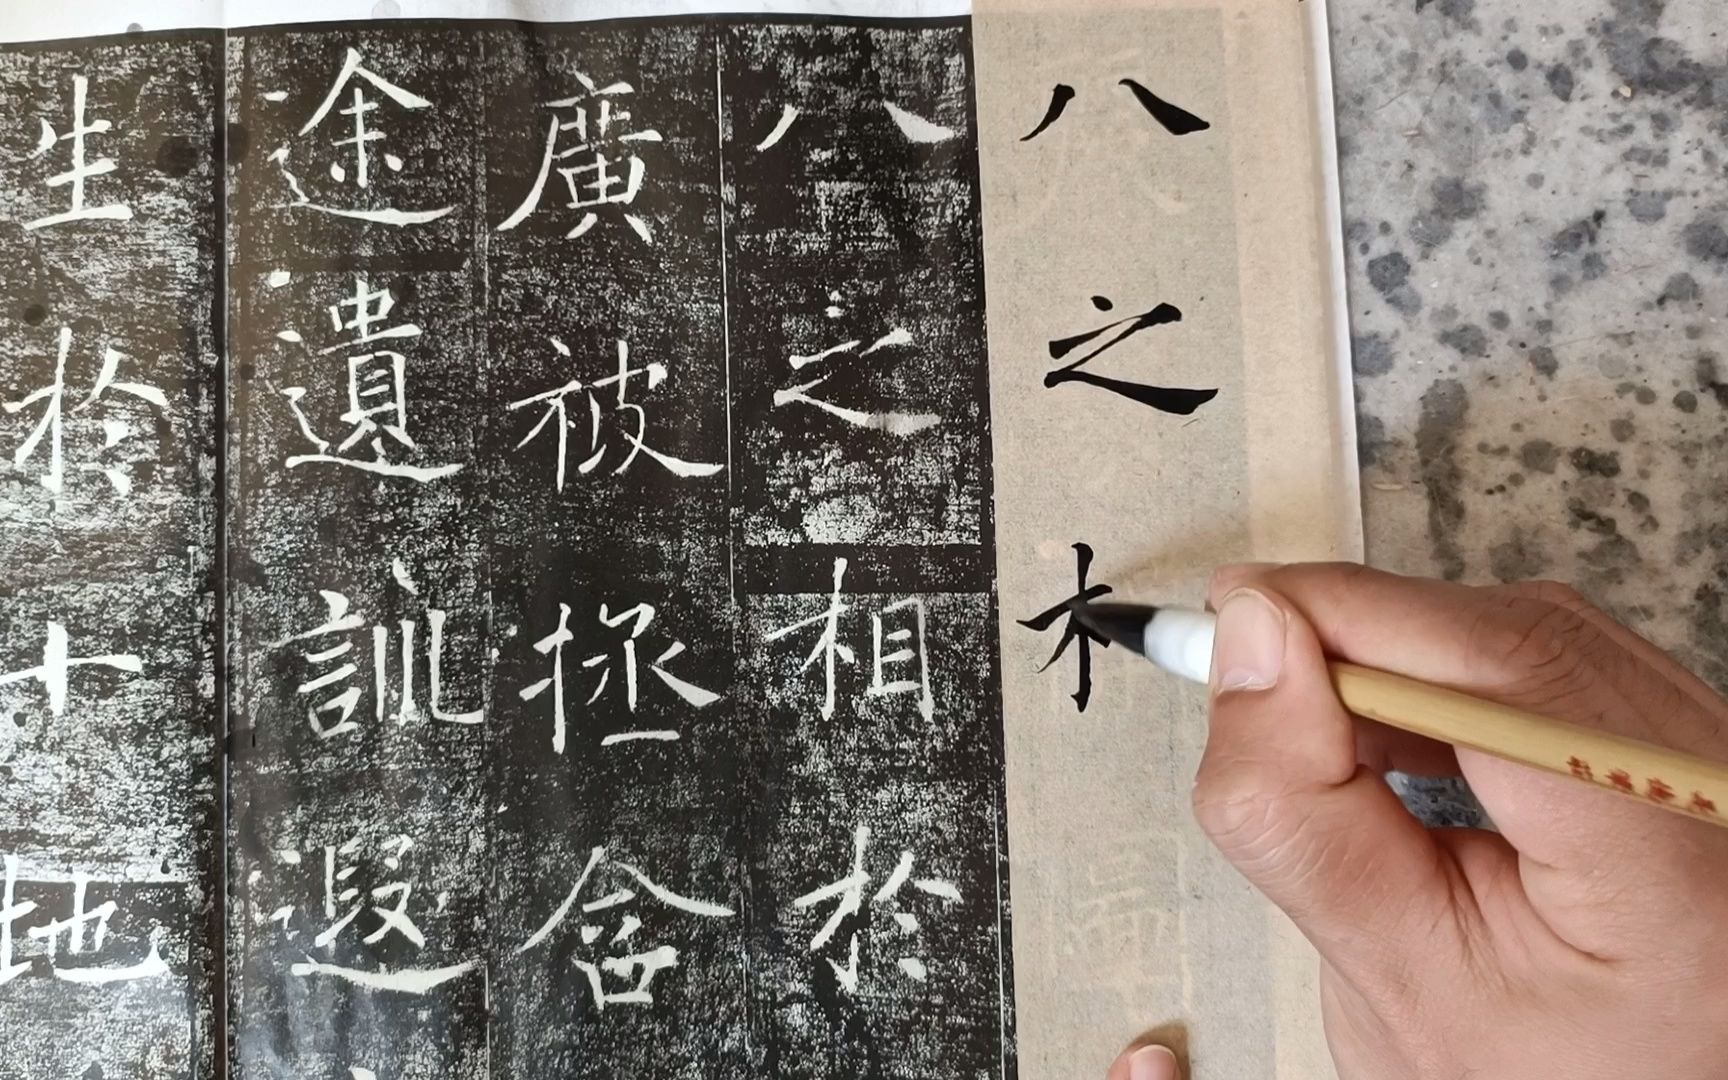 八之木
八之相於
廣被拯含
途遺訓遐
生於十地